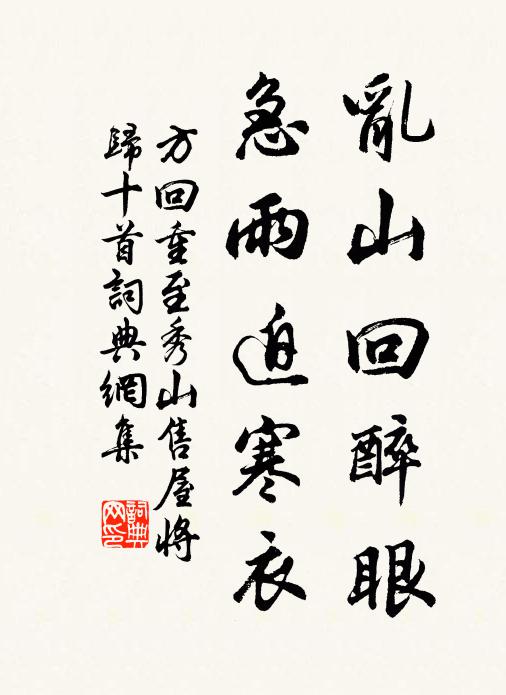 亂山回醉眼
急雨迫寒衣
方回重至秀山售屋將
歸十首詞典網集
詞典
网印